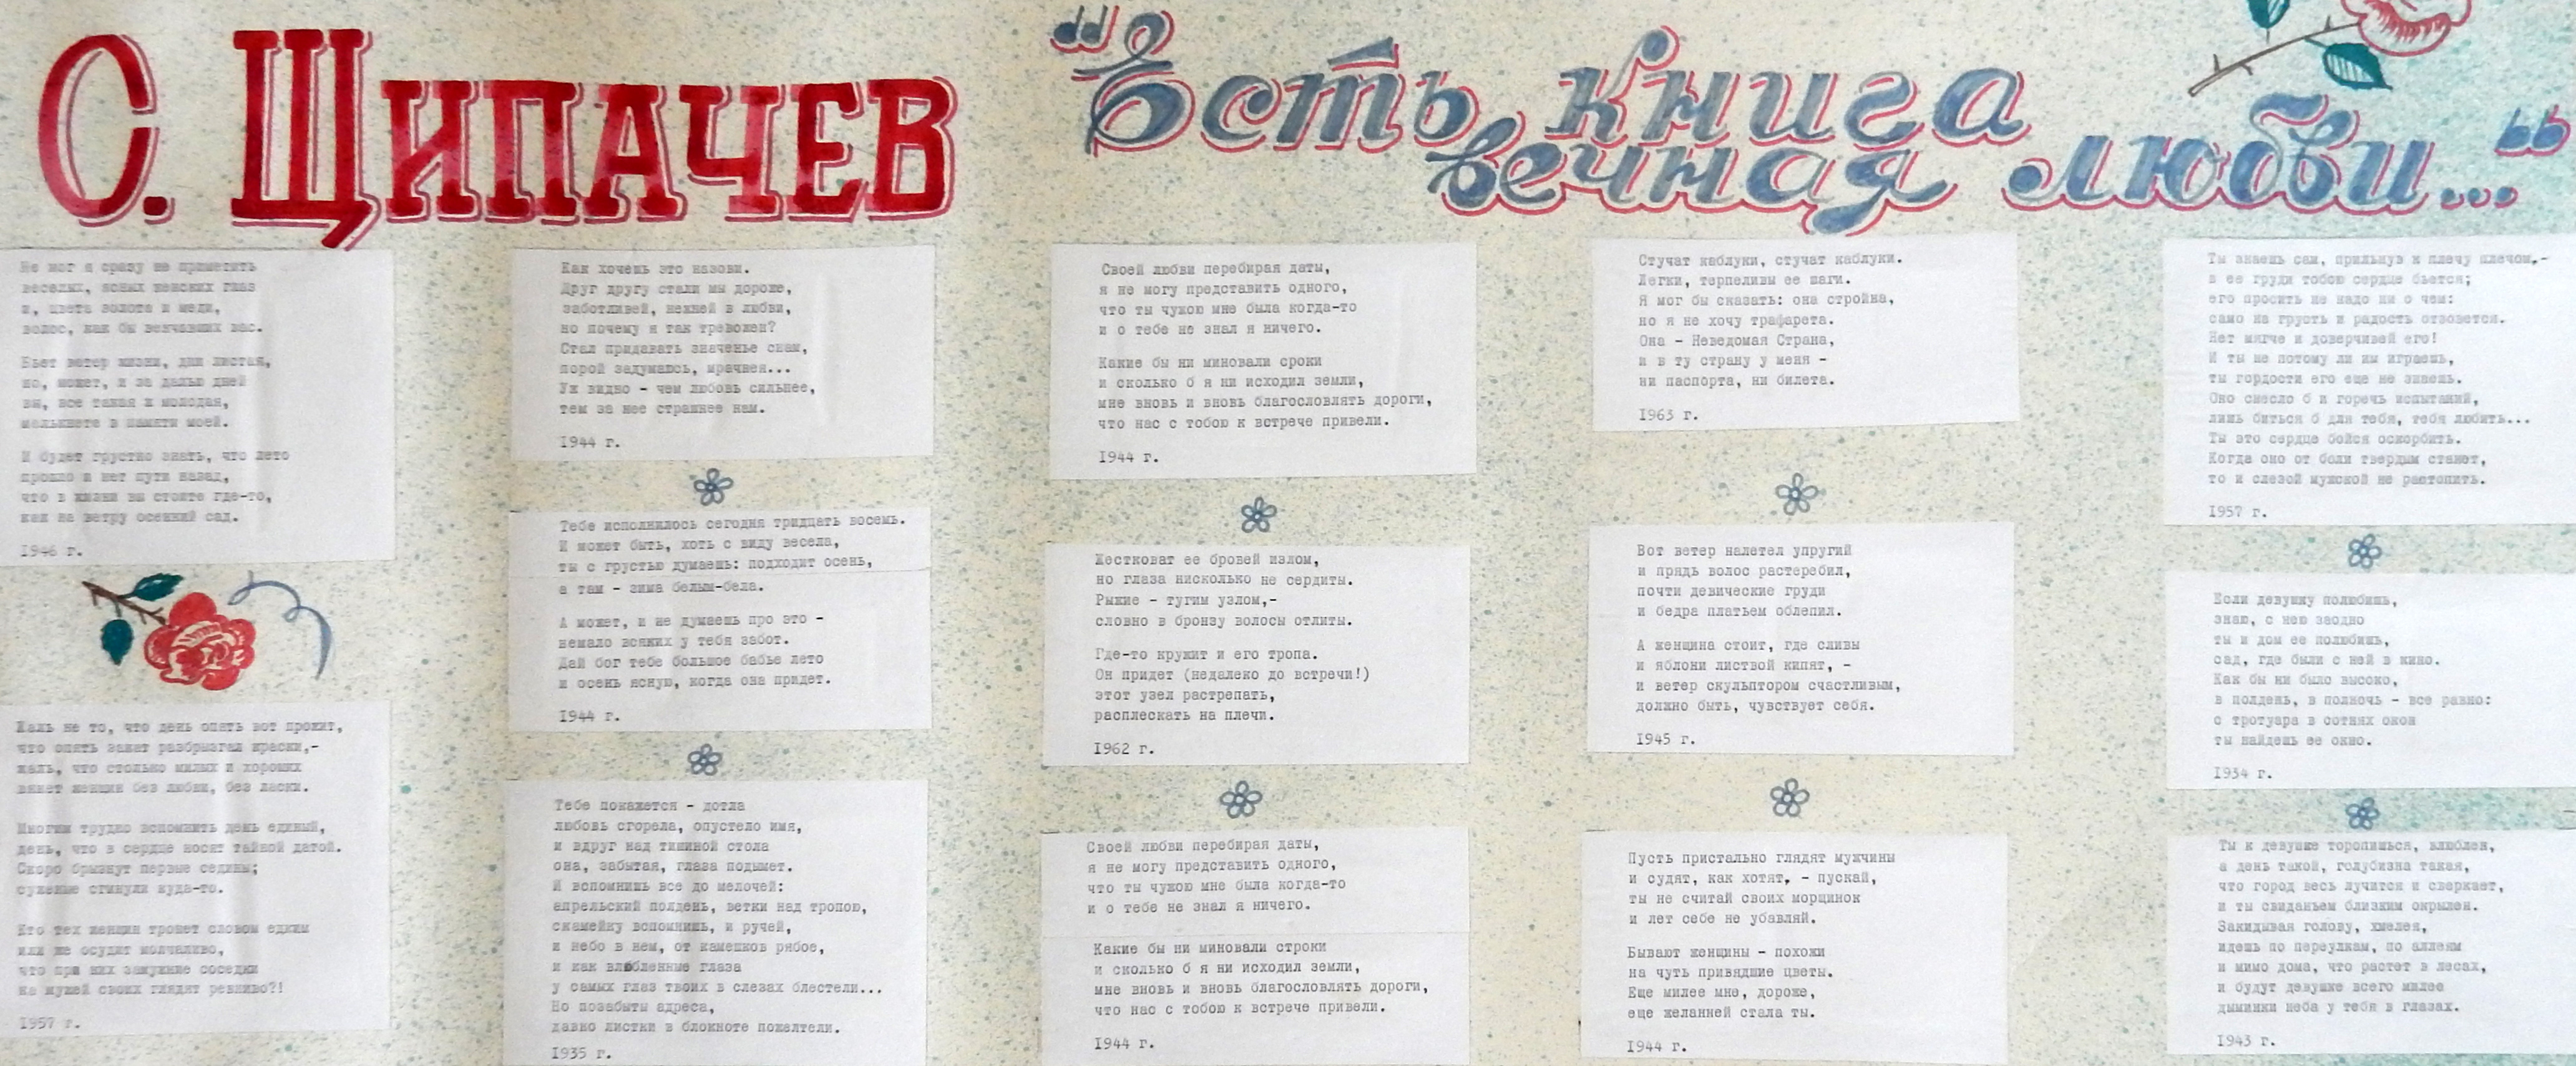 С. ЩИПАЧЕВ
"Есть книга
вечная любви..."
Не мог я сразу не приметить
веселых, ясных женских глаз
и, цвета золота и меди,
волос, как бы венчавших вас.
Бьет ветер жизни, дни листая,
но, может, и за далью дней
вы, все такая ж молодая,
мелькнете в памяти моей.
И будет грустно знать, что лето
прошло и нет пути назад,
что в жизни вы стоите где-то,
как на ветру осенний сад.
1946 г.
Жаль не то, что день опять вот прожит,
что опять закат разбрызгал краски,-
жаль, что столько милых и хороших
вянет женщин без любви, без ласки.
Многим трудно вспомнить день единый,
день, что в сердце носят тайной датой.
Скоро брызнут первые седины;
суженые сгинули куда-то.
Кто тех женщин тронет словом едким
или же осудит молчаливо,
что при них замужние соседки
на мужей своих глядят ревниво?!
1957 г.
Как хочешь это назови.
Друг другу стали мы дороже,
заботливей, нежней в любви,
но почему я так тревожен?
Стал придавать значенье снам,
порой задумаюсь, мрачнея...
Уж видно - чем любовь сильнее,
тем за нее страшнее нам.
1944 г.
Тебе исполнилось сегодня тридцать восемь.
И может быть, хоть с виду весела,
ты с грустью думаешь: подходит осень,
а там - зима белым-бела.
А может, и не думаешь про это -
немало всяких у тебя забот.
Дай бог тебе большое бабье лето
и осень ясную, когда она придет.
1944 г.
Тебе покажется - дотла
любовь сгорела, опустело имя,
и вдруг над тишиной стола
она, забытая, глаза подымет.
И вспомнишь все до мелочей:
апрельский полдень, ветки над тропою,
скамейку вспомнишь, и ручей,
и небо в нем, от камешков рябое,
и как влюбленные глаза
у самых глаз твоих в слезах блестели...
Но позабыты адреса,
давно листки в блокноте пожелтели.
1935 г.
Своей любви перебирая даты,
я не могу представить одного,
что ты чужою мне была когда-то
и о тебе не знал я ничего.
Какие бы ни миновали сроки
и сколько б я ни исходил земли,
мне вновь и вновь благословлять дороги,
что нас с тобою к встрече привели.
1944 г.
Жестковат ее бровей излом,
но глаза нисколько не сердиты.
Рыжие - тугим узлом,-
словно в бронзу волосы отлиты.
Где-то кружит и его тропа.
Он придет (недалеко до встречи!)
этот узел растрепать,
расплескать на плечи.
1962 г.
Своей любви перебирая даты,
я не могу представить одного,
что ты чужою мне была когда-то
и о тебе не знал я ничего.
Какие бы ни миновали строки
и сколько б я ни исходил земли,
мне вновь и вновь благословлять дороги,
что нас с тобою к встрече привели.
1944 г.
Стучат каблуки, стучат каблуки.
Легки, терпеливы ее шаги.
Я мог бы сказать: она стройна,
но я не хочу трафарета.
Она - Неведомая Страна,
и в ту страну у меня -
ни паспорта, ни билета.
1963 г.
Вот ветер налетел упругий
и прядь волос растеребил,
почти девические груди
и бедра платьем облепил.
А женщина стоит, где сливы
и яблони листвой кипят, -
и ветер скульптором счастливым,
должно быть, чувствует себя.
1945 г.
Пусть пристально глядят мужчины
и судят, как хотят, - пускай,
ты не считай своих морщинок
и лет себе не убавляй.
Бывают женщины - похожи
на чуть привядшие цветы.
Еще милее мне, дороже,
еще желанней стала ты.
1944 г.
Ты знаешь сам, прильнув к плечу плечом,-
в ее груди тобою сердце бьется;
его просить не надо ни о чем:
само на грусть и радость отзовется.
Нет мягче и доверчивей его!
И ты не потому ли им играешь,
ты гордости его еще не знаешь.
Оно снесло б и горечь испытаний,
лишь биться б для тебя, тебя любить...
Ты это сердце бойся оскорбить.
Когда оно от боли твердым станет,
то и слезой мужской не растопить.
1957 г.
Если девушку полюбишь,
знаю, с нею заодно
ты и дом ее полюбишь,
сад, где были с ней в кино.
Как бы ни было высоко,
в полдень, в полночь - все равно:
с тротуара в сотнях окон
ты найдешь ее окно.
1934 г.
Ты к девушке торопишься, влюблен,
а день такой, голубизна такая,
что город весь лучится и сверкает,
и ты свиданьем близким окрылен.
Закидывая голову, хмелея,
идешь по переулкам, по аллеям
и мимо дома, что растет в лесах,
и будут девушке всего милее
дыминки неба у тебя в глазах.
1943 г.